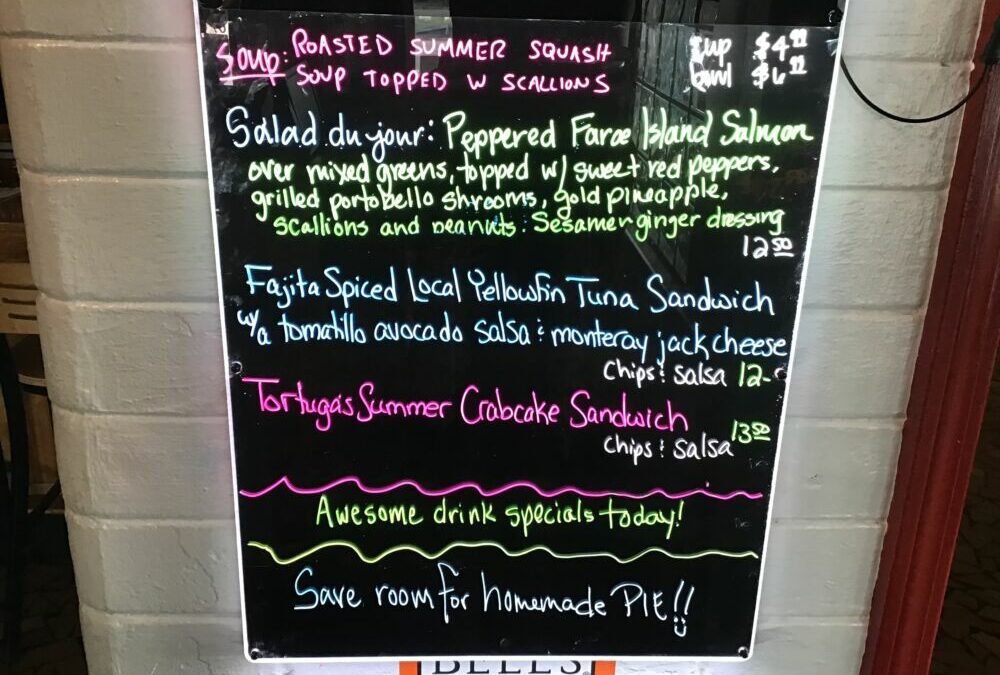 Soup: ROASTED SUMMER SQUASH cup $4.99
SOUP TOPPED W SCALLIONS bowl $6.99
Salad du jour: Peppered Faroe Island Salmon
over mixed greens, topped w/ sweet red peppers,
grilled portobello shrooms, gold pineapple,
scallions and peanuts. Sesame ginger dressing
12.50
Fajita Spiced Local Yellowfin Tuna Sandwich
w/a tomatillo avocado salsa & monteray jack cheese
Chips & salsa 12-
Tortuga's Summer Crabcake Sandwich
Chips & salsa 13.50
Awesome drink specials today!
Save room for homemade PIE!!
BELL'S